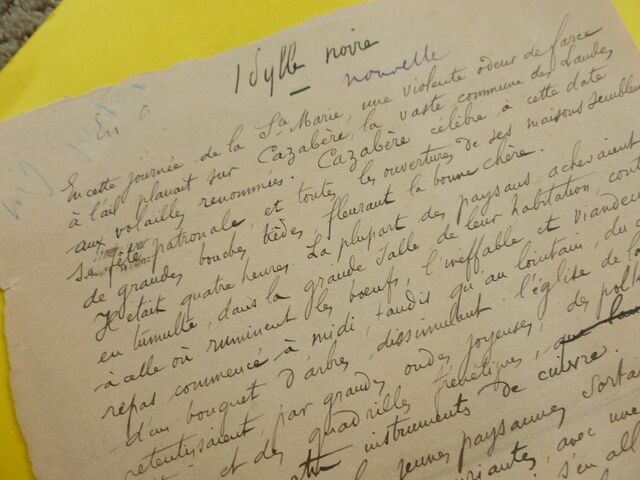 Idylle noire
nouvelle
En
En cette journée de la Ste Marie, une violente odeur de farce
à l'ail planait sur Cazabère, la vaste commune des Landes
aux volailles renommées. Cazabère célèbre à cette date
sa fête patronale, et toutes les ouvertures de ses maisons semblent
de grandes bouches tièdes fleurant la bonne chère.
Il était quatre heures. La plupart des paysans achevaient
en tumulte, dans la grande salle de leur habitation,
à celle où ruminent les bœufs, l'ineffable et
repas commencé à midi, tandis qu'au lointain, du
d'un bouquet d'arbres, dissimulant l'église de
retentissaient, par grandes ondes joyeuses, des
et des quadrilles frénétiques,
instruments de cuivre.
jeunes paysannes
avec une
s'en